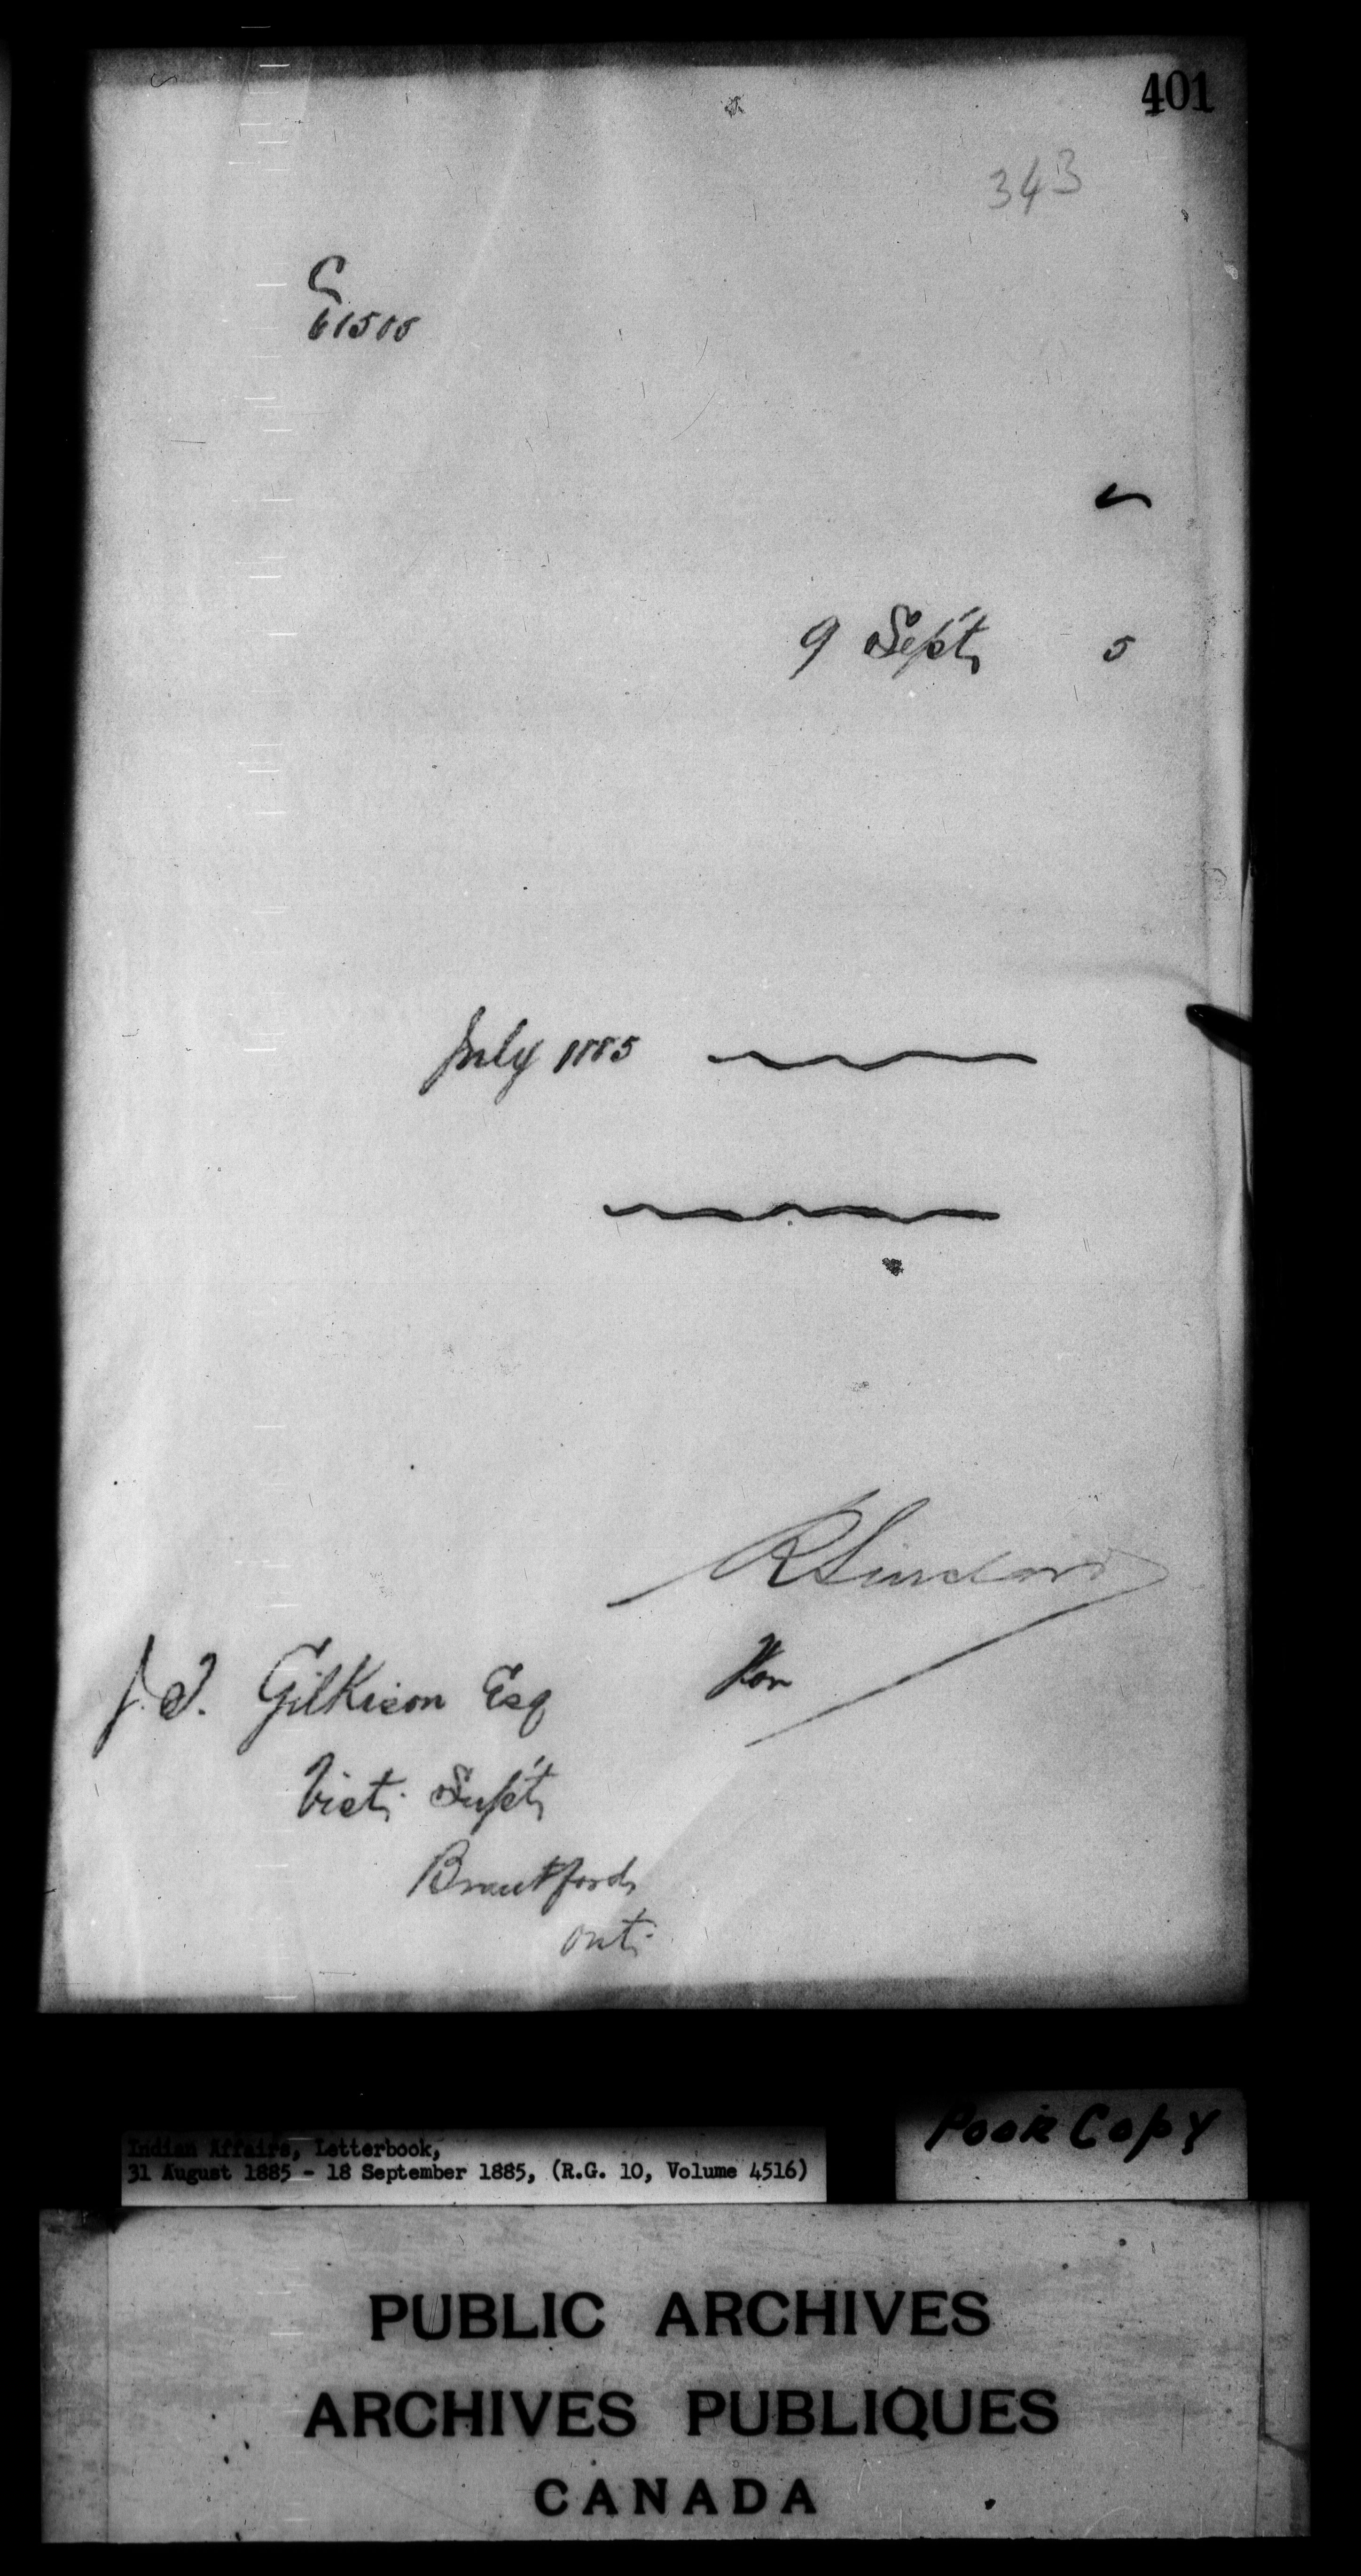 401
343
C
61505
9 Sept, 5
July 1885
R Sinclair
J. T. Gilkison Esq
for
Visit. Supt,
Brantford,
Ont.
Poor Copy
Indian Affairs, Letterbook,
31 August 1885 - 18 September 1885, (R.G. 10, Volume 4516)
PUBLIC ARCHIVES
ARCHIVES PUBLIQUES
CANADA